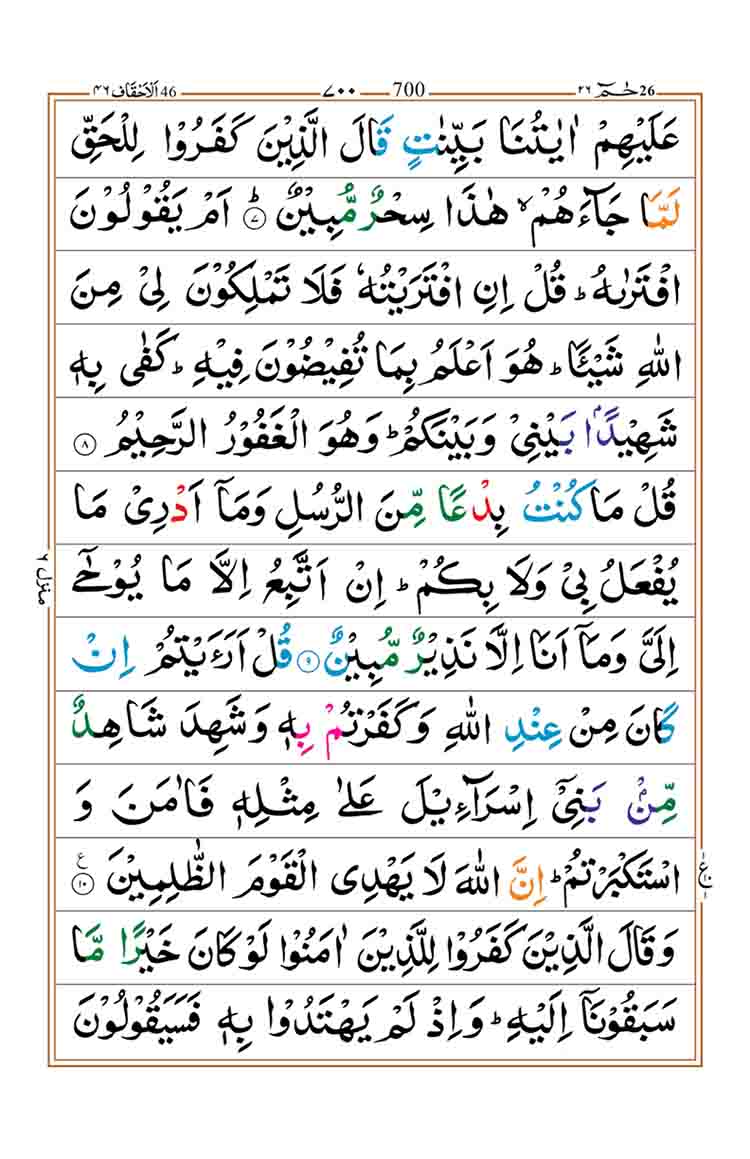 46 اَلْاَحْقَاف ٤٦ ٧٠٠ 700 حٰمٓ 26 ٢٦
عَلَيْهِمْ اٰيٰتُنَا بَيِّنٰتٍ قَالَ الَّذِيْنَ كَفَرُوْا لِلْحَقِّ
لَمَّا جَآءَهُمْ ۙ هٰذَا سِحْرٌ مُّبِيْنٌ ؕ ۝٧ اَمْ يَقُوْلُوْنَ
افْتَرٰىهُ ؕ قُلْ اِنِ افْتَرَيْتُهٗ فَلَا تَمْلِكُوْنَ لِيْ مِنَ
اللّٰهِ شَيْـًٔا ؕ هُوَ اَعْلَمُ بِمَا تُفِيْضُوْنَ فِيْهِ ؕ كَفٰى بِهٖ
شَهِيْدًۢا بَيْنِيْ وَبَيْنَكُمْ ؕ وَهُوَ الْغَفُوْرُ الرَّحِيْمُ ۝٨
قُلْ مَا كُنْتُ بِدْعًا مِّنَ الرُّسُلِ وَمَآ اَدْرِيْ مَا
يُفْعَلُ بِيْ وَلَا بِكُمْ ؕ اِنْ اَتَّبِعُ اِلَّا مَا يُوْحٰٓى
اِلَيَّ وَمَآ اَنَا اِلَّا نَذِيْرٌ مُّبِيْنٌ ۝٩ قُلْ اَرَءَيْتُمْ اِنْ
كَانَ مِنْ عِنْدِ اللّٰهِ وَكَفَرْتُمْ بِهٖ وَشَهِدَ شَاهِدٌ
مِّنْۢ بَنِيْٓ اِسْرَآءِيْلَ عَلٰى مِثْلِهٖ فَاٰمَنَ وَ
اسْتَكْبَرْتُمْ ؕ اِنَّ اللّٰهَ لَا يَهْدِى الْقَوْمَ الظّٰلِمِيْنَ ۝١٠ ع
وَقَالَ الَّذِيْنَ كَفَرُوْا لِلَّذِيْنَ اٰمَنُوْا لَوْ كَانَ خَيْرًا مَّا
سَبَقُوْنَآ اِلَيْهِ ؕ وَاِذْ لَمْ يَهْتَدُوْا بِهٖ فَسَيَقُوْلُوْنَ
منزل ٦